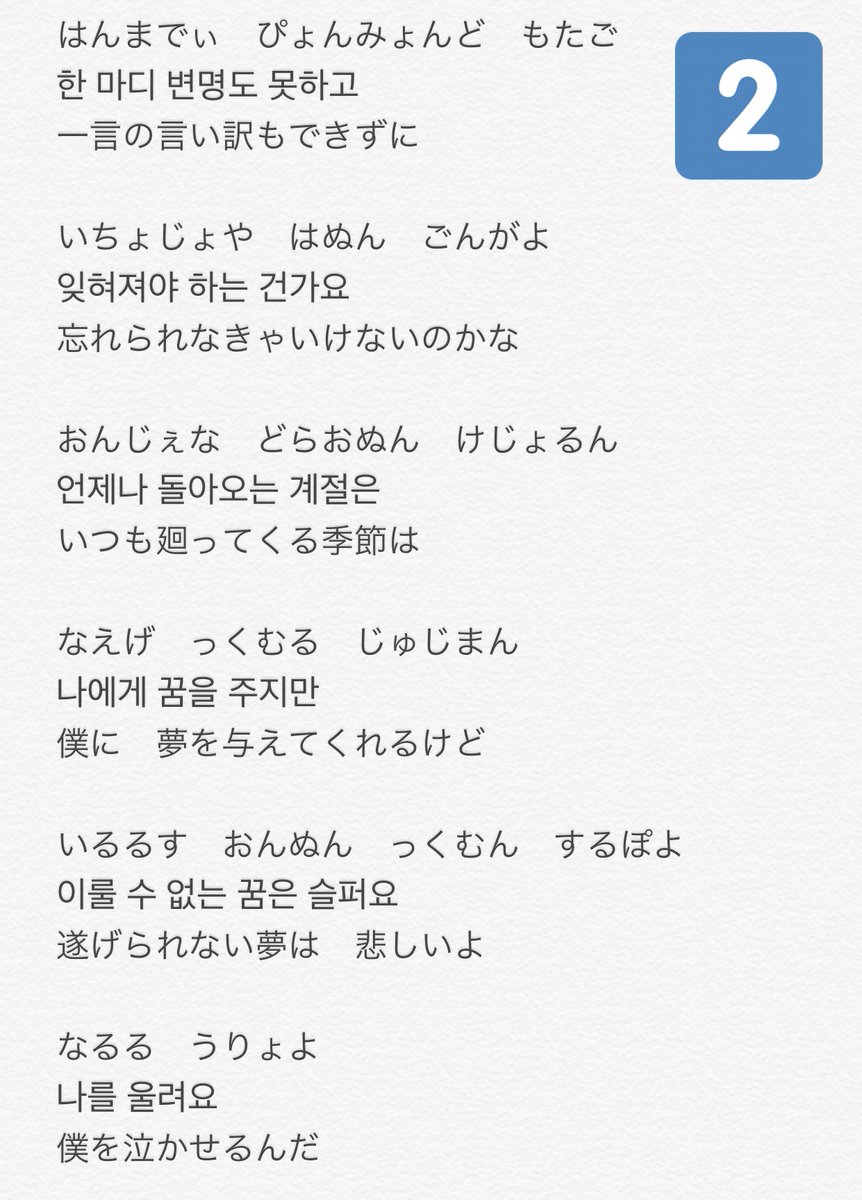 はんまでぃ　ぴょんみょんど　もたご
2
한 마디 변명도 못하고
一言の言い訳もできずに
いちょじょや　はぬん　ごんがよ
잊혀져야 하는 건가요
忘れられなきゃいけないのかな
おんじぇな　どらおぬん　けじょるん
언제나 돌아오는 계절은
いつも廻ってくる季節は
なえげ　っくむる　じゅじまん
나에게 꿈을 주지만
僕に　夢を与えてくれるけど
いるるす　おんぬん　っくむん　するぽよ
이룰 수 없는 꿈은 슬퍼요
遂げられない夢は　悲しいよ
なるる　うりょよ
나를 울려요
僕を泣かせるんだ